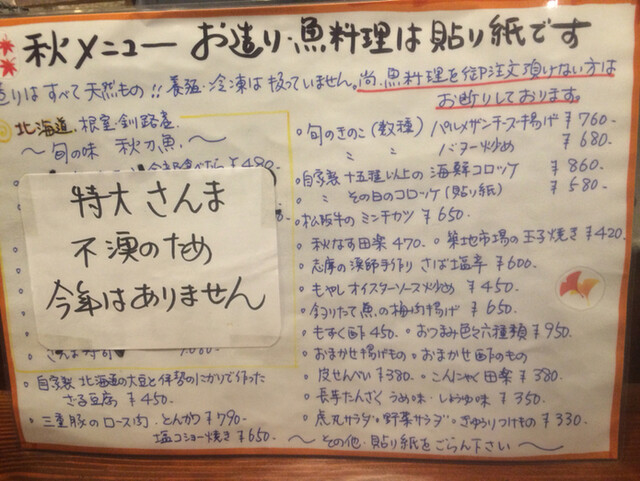 秋メニュー お造り・魚料理は貼り紙です
造りはすべて天然もの!! 養殖・冷凍は扱っていません。尚、魚料理を御注文頂けない方は
お断りしております。
北海道、根室・釧路産
〜旬の味 秋刀魚、〜
¥480
特大 さんま
不漁のため
今年はありません
さんま寿司
自家製 北海道の大豆と伊勢のにがりで作った
ざる豆腐 ¥450-
三重豚のロース肉・とんかつ ¥790-
塩コショー焼き ¥650.
旬のきのこ(数種) パルメザンチーズ揚げ ¥760
〃 〃 バター炒め ¥680
自家製 十五種以上の海鮮コロッケ ¥860
〃 その日のコロッケ(貼り紙) ¥580
松阪牛のミンチカツ ¥650.
秋なす田楽 470. 築地市場の玉子焼き ¥420.
志摩の漁師手作り さば塩辛 ¥600-
もやしオイスターソース炒め ¥450-
釣りたて魚の梅肉揚げ ¥650
もずく酢 450. おつまみ色々六種類 ¥950.
おまかせ揚げもの おまかせ酢のもの
皮せんべい ¥380. こんにゃく田楽 ¥380.
長芋たんざく うめ味・しょうゆ味 ¥350
虎丸サラダ・野菜サラダ・きゅうりつけもの ¥330
〜その他・貼り紙をごらん下さい〜